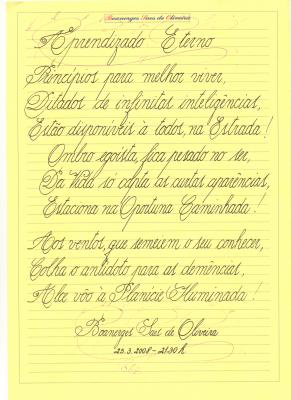 Boanerges Saes de Oliveira
Aprendizado Eterno
Princípios para melhor viver,
Ditados de infinitas inteligências,
Estão disponíveis à todos, na Estrada!
Ombro egoísta, fica pesado no ser,
Da Vida só capta as curtas aparências,
Estaciona na Oportuna Caminhada!
Aos ventos, que semeiem o seu conhecer,
Colha o antídoto para as demências,
Alce vôo à Planície Iluminada!
Boanerges Saes de Oliveira
25.3.2008 - 21:30h